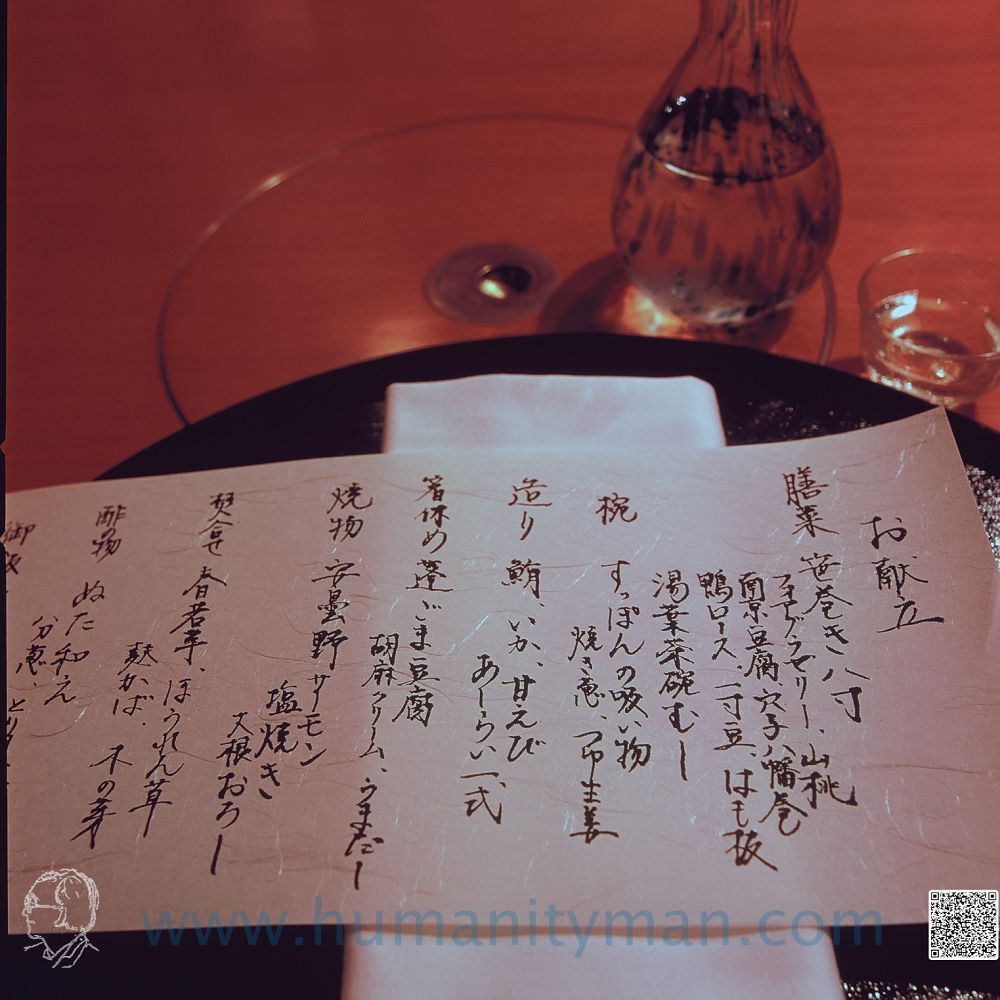 お献立
膳菜 笹巻き八寸
マデラゼリー、山桃
南京豆腐、穴子八幡巻
鴨ロース、一寸豆、はも板
湯葉茶碗むし
椀 すっぽんの吸い物
焼き葱、つゆ生姜
造り 鮪、いか、甘えび
あしらい一式
箸休め 蓬ごま豆腐
胡麻クリーム、うまだし
焼物 安曇野サーモン
塩焼き
大根おろし
焚合せ 春若芋、ほうれん草
麩かば、木の芽
酢の物 ぬた和え
分葱、
御飯
www.humanityman.com